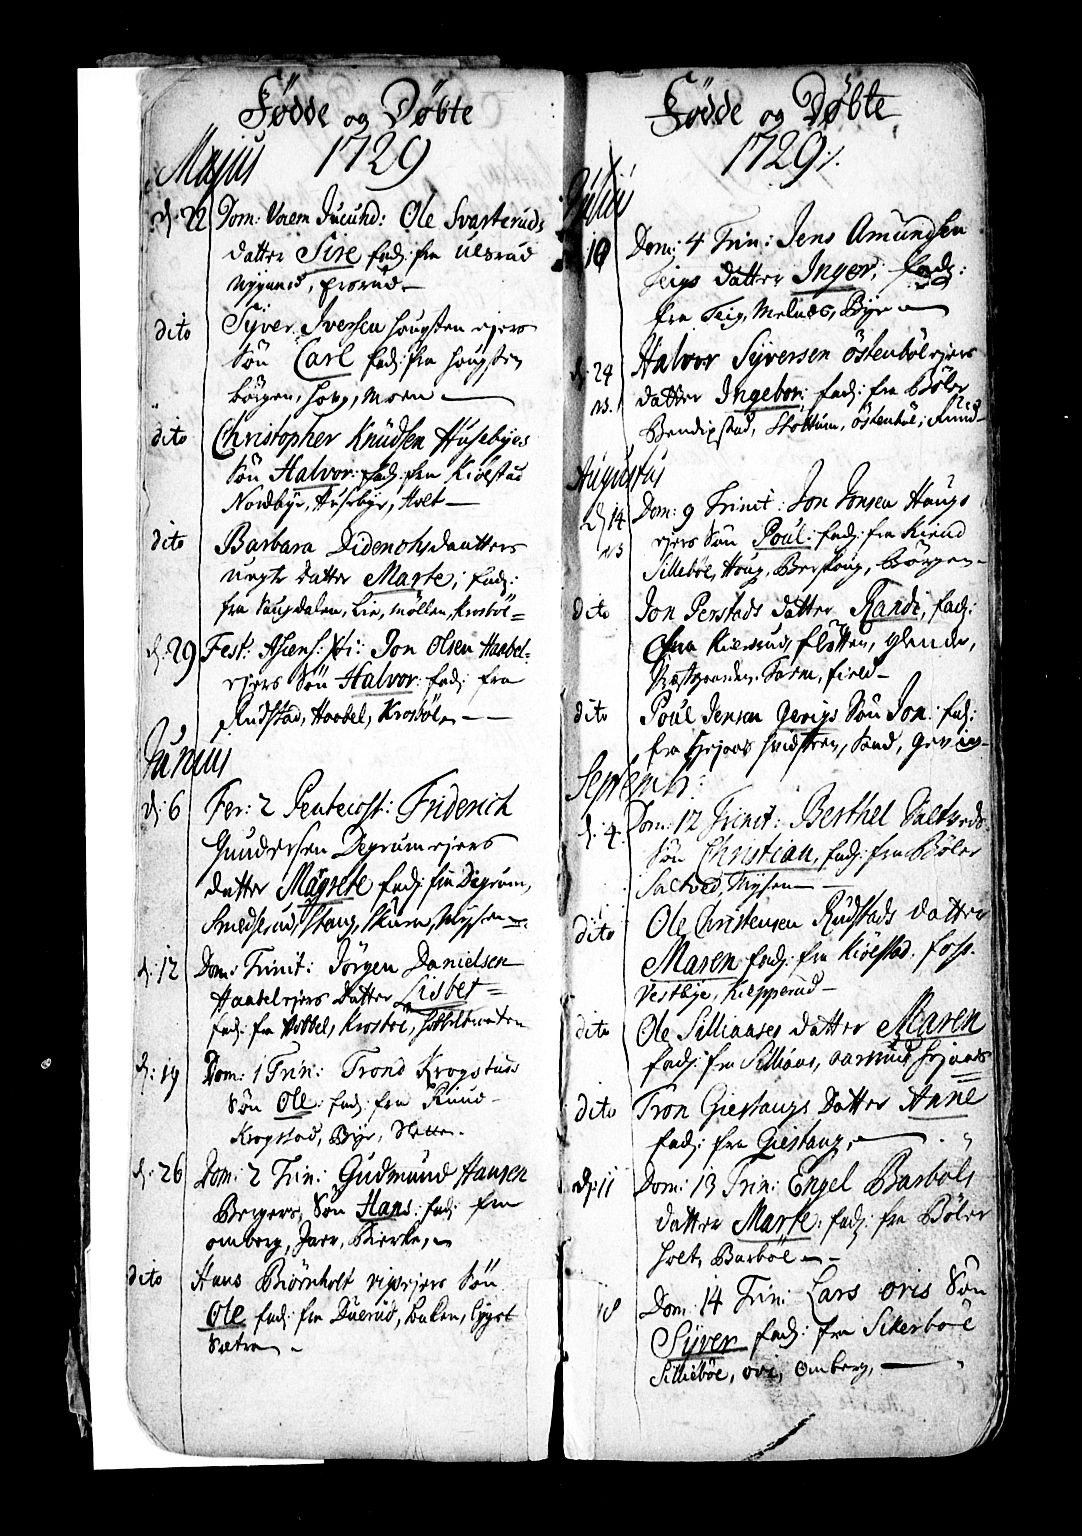 Fødde og Døbte
1729
Majus
d: 22 Dom: Vocem Jucund: Ole Svarteruds
datter Sire fad: fra Ulsrud
Nygaard,
dito Syver Iversen Hougsten ejers
Søn Carl fad: fra Hougsten
Börgen, Hove, Moen
dito Christopher Knudsen Husebyes
Søn Halvor: fad: fra Kiölstad
Nordbye, Husebye, Holt
dito Barbara Didrichsdaatters
uegte datter Marte; fad:
fra Saugdalen, Lie, Möllen, Krosböe
d: 29 Fest: Ascens: Xti: Jon Olsen Haabel-
ejers Søn Halvor: fad: fra
Rudstad, Haabel, Krosböe
Junius
d: 6 Fer: 2 Pentecost: Friderich
Gundersen Degrum ejers
datter Magrete fad: fra Degrum,
Smedsrud, Stang, Skura, Mysen
d: 12 Dom: Trinit: Jörgen Danielsen
Haabel ejers datter Lisbet
fad: fra Habbel, Krosböe,
d: 19 Dom: 1 Trin: Trond Krogstads
Søn Ole: fad: fra Ruud
Krogstad, Bye, Slette
d: 26 Dom: 2 Trin: Gudmund Hansen
Bergers Søn Hans: fad: fra
Omberg, Jaer, Kierke,
dito Hans Biörnholt Vigs ejers Søn
Ole fad: fra Duerud, Bakken, Lyget
Sætra
Fødde og Døbte
1729
Julius
10 Dom: 4 Trin: Jens Amundsen
Teigs datter Inger; fad:
fra Teig, Melnes, Bye
d: 24 Halvor Syversen Östenböl ejers
ns. datter Ingebor; fad: fra Böler
Bendigstad, Skottum, Östenböl, Ruud
Augustus
d: 14 Dom: 9 Trinit: Jon Jonsen Haugs
ns ejers Søn Poul: fad: fra Ruud
Silleböe, Houg, Bershoug, Börgen
dito Jon Perstads datter Randi, fad:
fra Kilerud, Fletten, Glende,
Præstgaarden, Sarm, Field
dito Poul Jensen Gevigs Søn Jon: fad:
fra Hvidsteen, Sand, Gevig
Septemb:
d: 4 Dom: 12 Trinit: Berthel Saltveds
Søn Christian, fad: fra Böler
Saltved, Mysen
dito Ole Christensen Rudstads datter
Maren fad: fra Kiölstad, Foss
Vestbye, Klepperud
dito Ole Silliaases datter Maren
fad: fra Silliaas, Aasmud,
dito Tron Giestangs datter Anne
fad: fra Giestang,
d: 11 Dom: 13 Trin: Engel Barböls
datter Marte: fad: fra Böler
Holt, Barböl
18 Dom: 14 Trin: Lars Ovis Søn
Syver fad: fra Sikerböle
Silleböe, Ovi, Omberg,